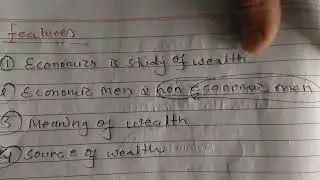 features
① Economics is study of wealth
② Economic men & non Economic men
③ Meaning of wealth
④ Source of wealth